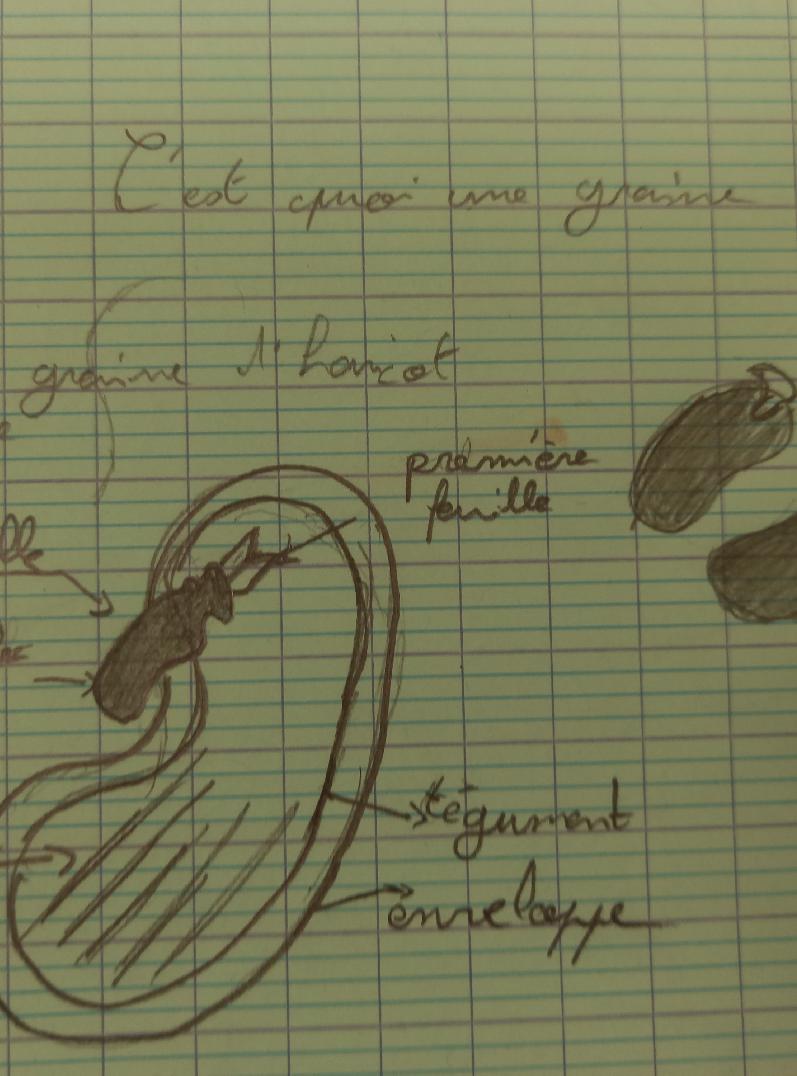 C'est quoi une graine
graine d'haricot
première
feuille
tégument
enveloppe